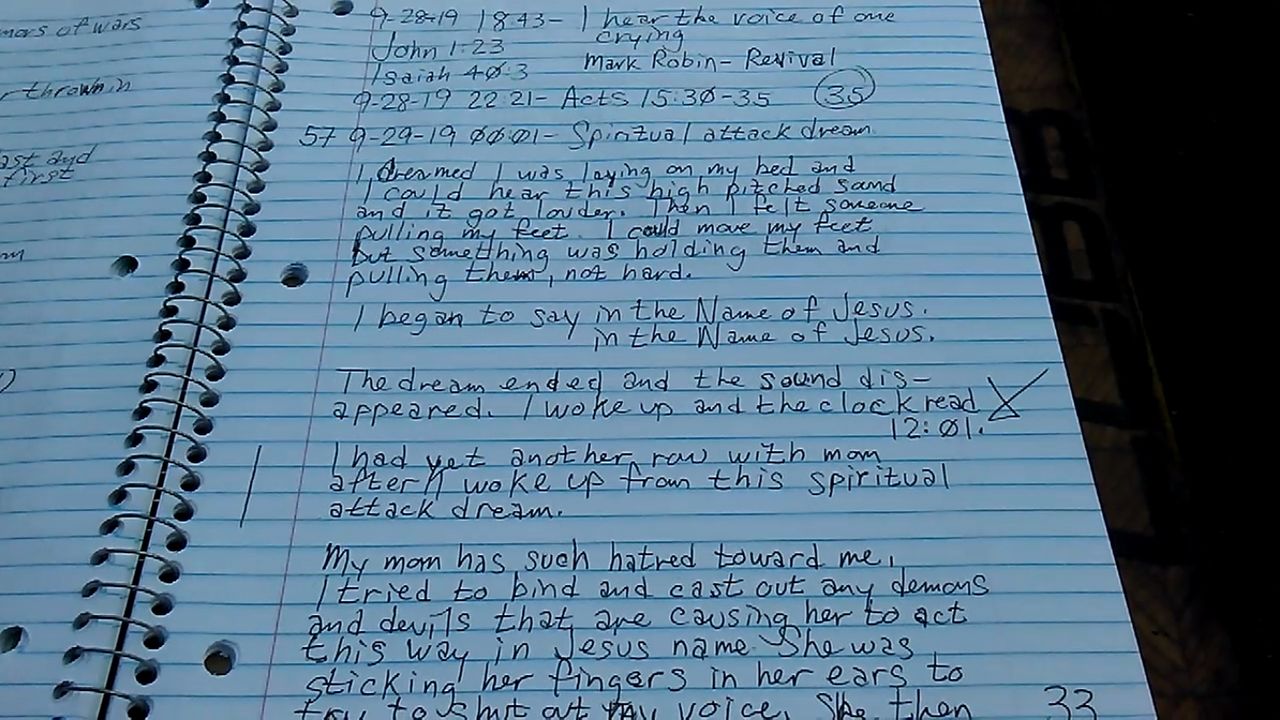 mors of wars
r thrown in
ast and
first
9-28-19 18:43- I hear the voice of one
crying
John 1:23
Isaiah 40:3 Mark Robin- Revival
9-28-19 22:21- Acts 15:30-35 35
57 9-29-19 00:01- Spiritual attack dream
I dreamed I was laying on my bed and
I could hear this high pitched sound
and it got louder. Then I felt someone
pulling my feet. I could move my feet
but something was holding them and
pulling them, not hard.
I began to say in the Name of Jesus.
in the Name of Jesus.
The dream ended and the sound dis-
appeared. I woke up and the clock read
12:01.
I had yet another row with mom
after I woke up from this spiritual
attack dream.
My mom has such hatred toward me.
I tried to bind and cast out any demons
and devils that are causing her to act
this way in Jesus name. She was
sticking her fingers in her ears to
try to shut out my voice. She then
33